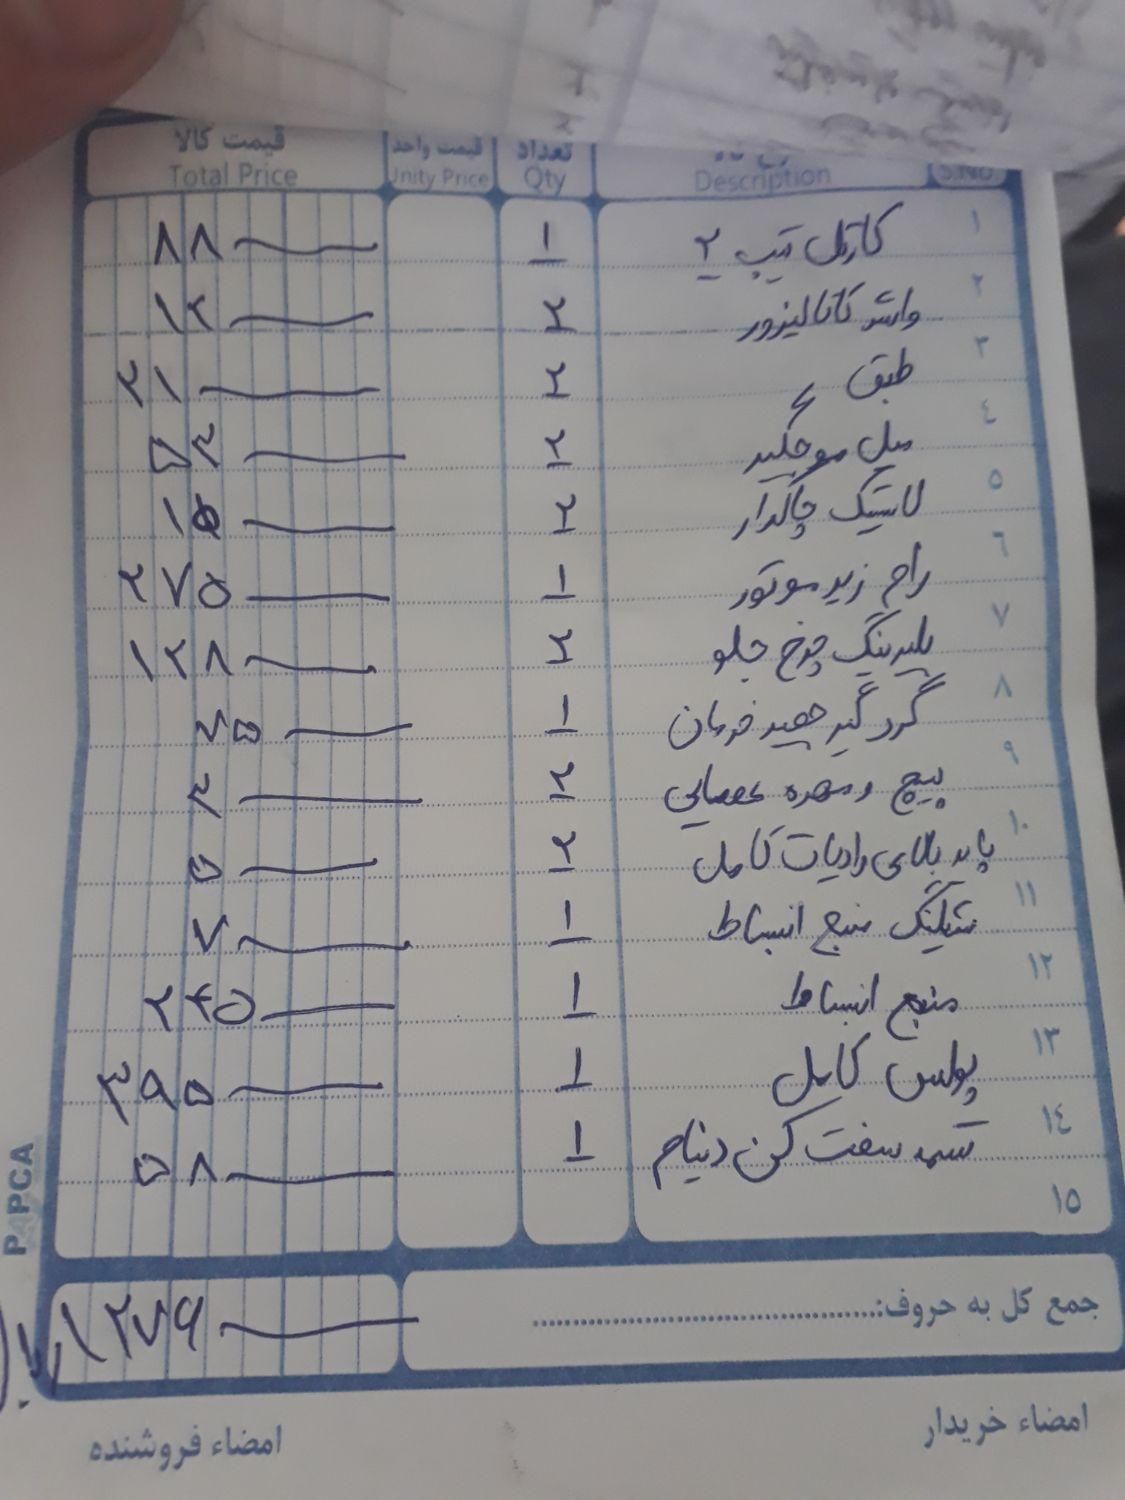 S.No Description تعداد Qty قیمت واحد Unity Price قیمت کالا Total Price
۱ کارتل تیپ ۲ ۱ ۸۸
۲ واشر کاتالیزور ۲ ۱۲
۳ طبق ۲ ۲۱
۴ میل موجگیر ۲ ۵۲
۵ لاستیک چاکدار ۲ ۱۵
۶ رام زیر موتور ۱ ۲۷۵
۷ بلبرینگ چرخ جلو ۲ ۱۲۸
۸ گردگیر جعبه فرمان ۱ ۷۵
۹ پیچ و مهره عصایی ۲ ۲
۱۰ پایه بالای رادیات کامل ۲ ۵
۱۱ شیلنگ منبع انبساط ۱ ۷
۱۲ منبع انبساط ۱ ۲۴۵
۱۳ پولس کامل ۱ ۳۹۵
۱۴ تسمه سفت کن دینام ۱ ۵۸
۱۵
جمع کل به حروف: ۱۲۷۹
امضاء خریدار امضاء فروشنده
PAPCA